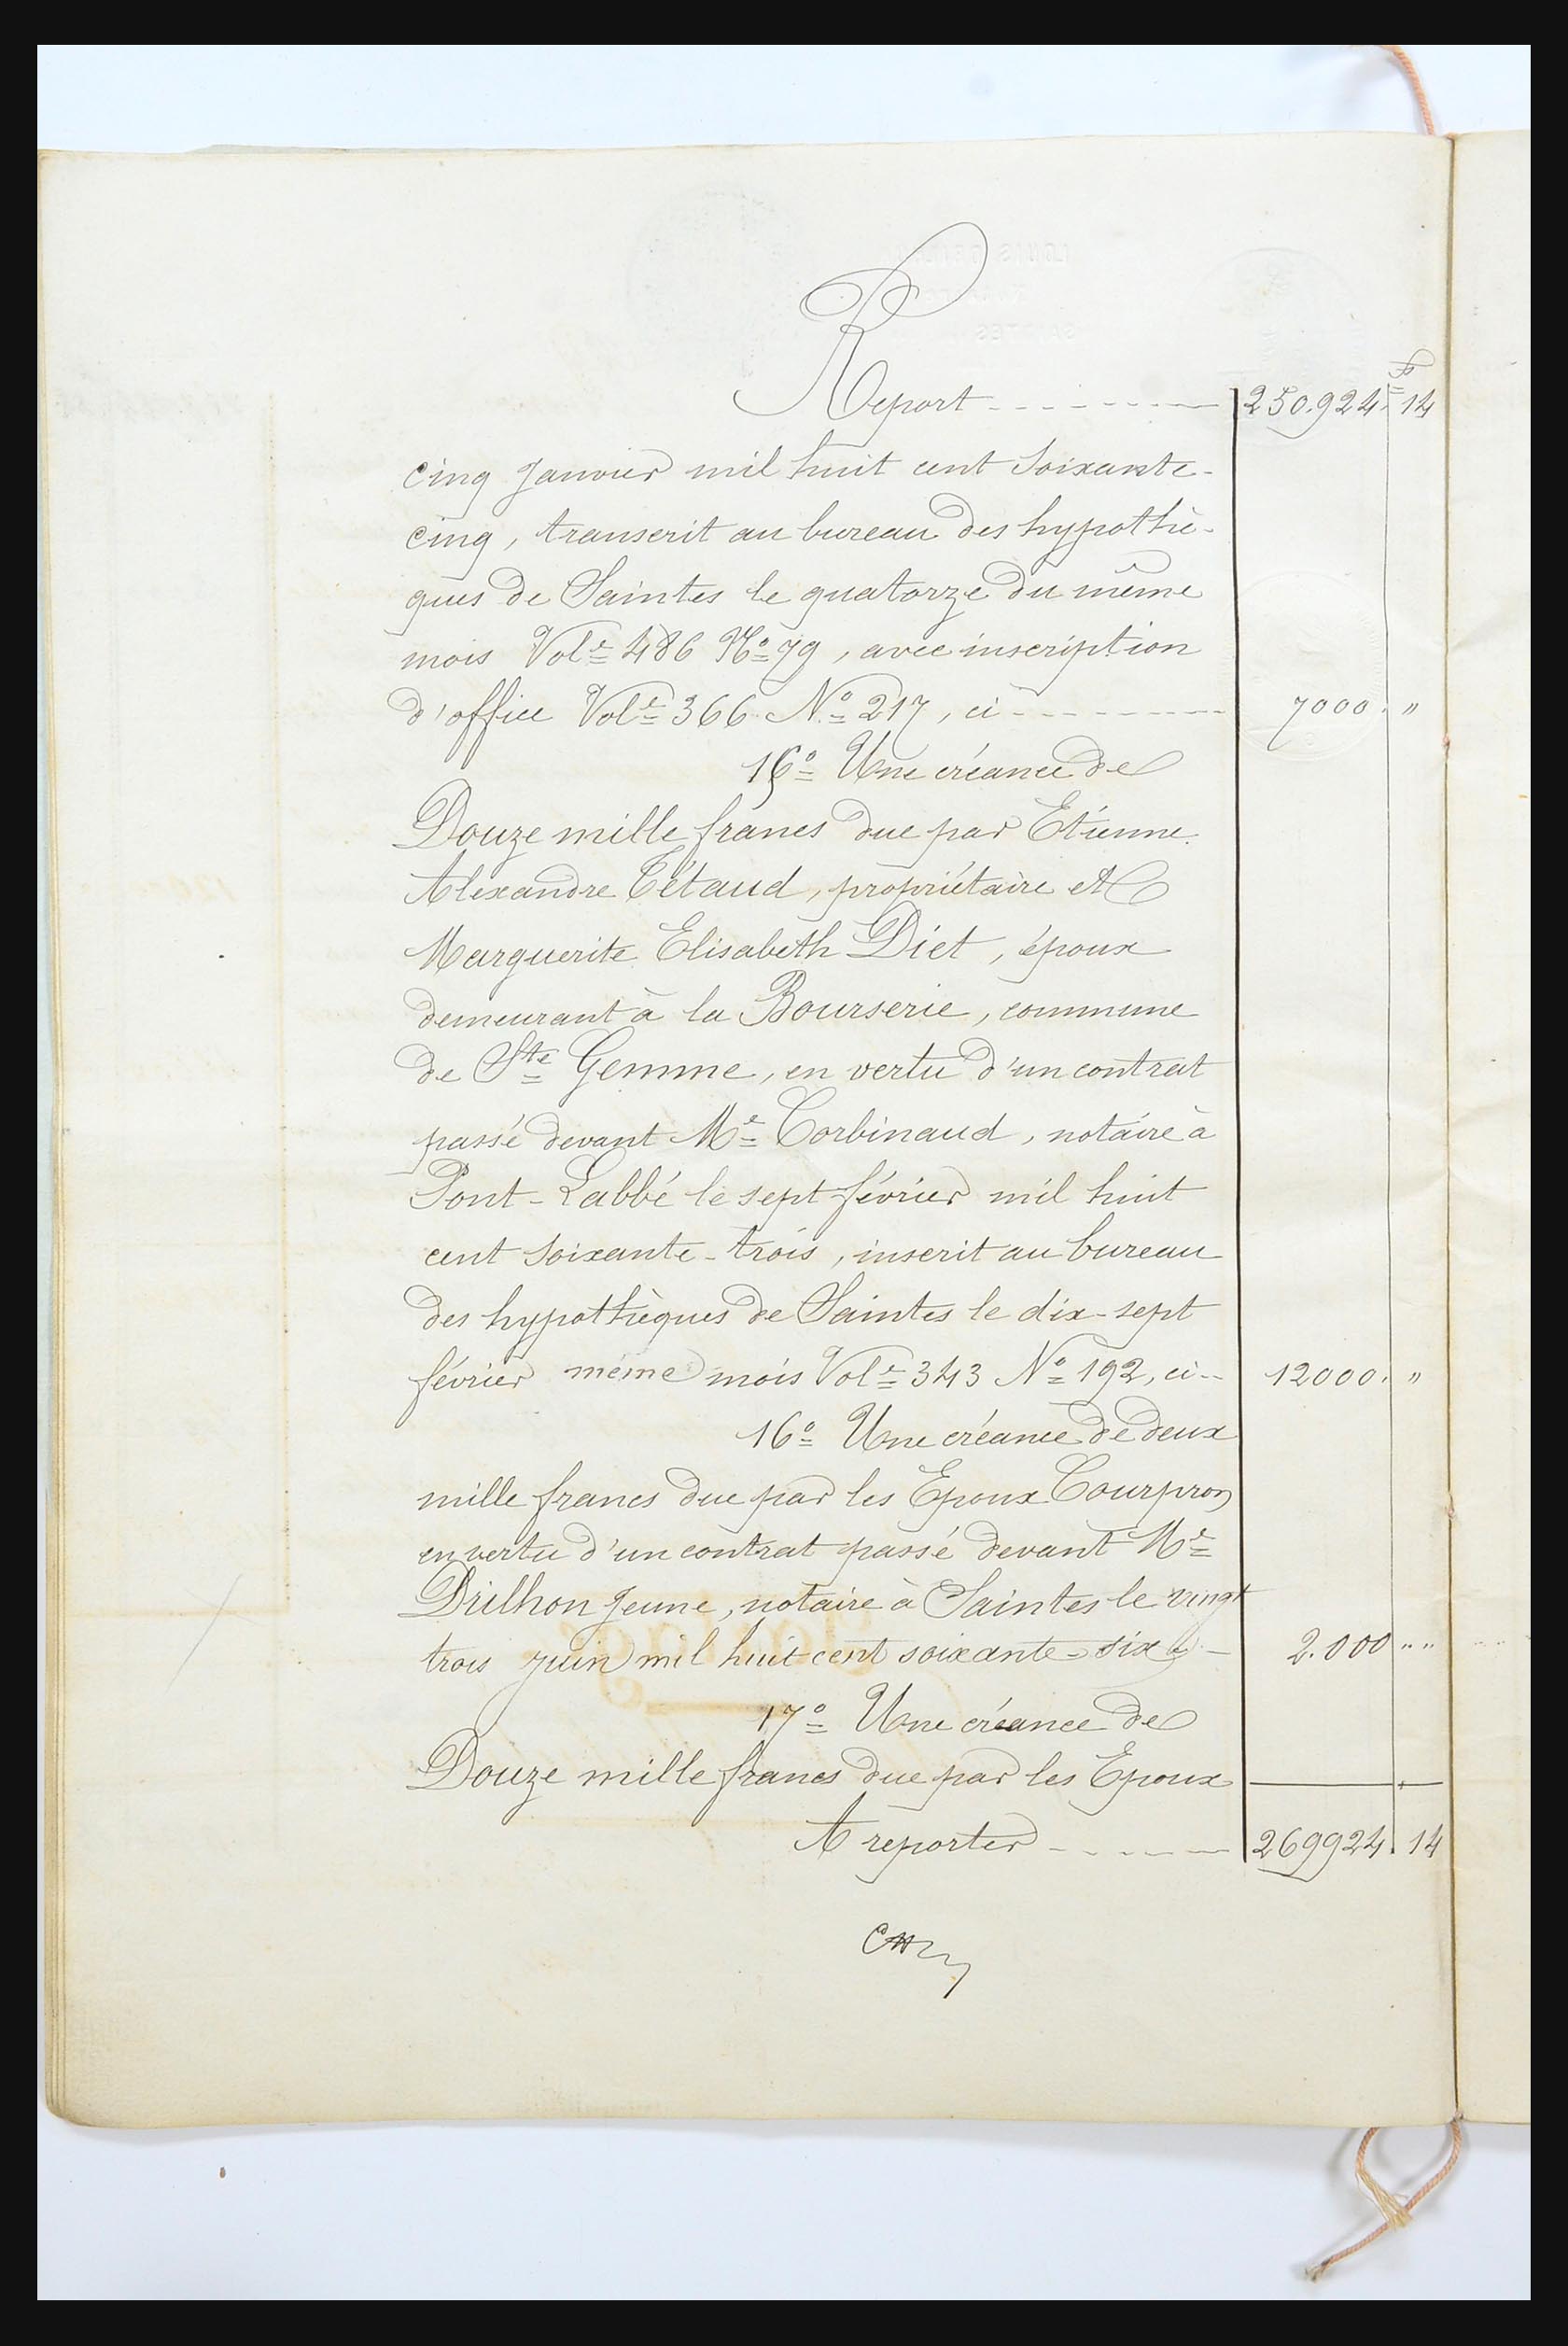 Report 250.924 F 14
cinq Janvier mil huit cent soixante-
cinq, transcrit au bureau des hypothè-
ques de Saintes le quatorze du même
mois Vol.e 486 No 79, avec inscription
d'office Vol.e 366 No 217, ci 7000. "
15o Une créance de
Douze mille francs due par Etienne
Alexandre Tétaud, propriétaire et
Marguerite Elisabeth Diet, époux
demeurant à la Bourserie, commune
de Ste Gemme, en vertu d'un contrat
passé devant Me Corbinaud, notaire à
Pont-Labbé le sept février mil huit
cent soixante-trois, inscrit au bureau
des hypothèques de Saintes le dix-sept
février même mois Vol.e 343 No 192, ci 12000. "
16o Une créance de deux
mille francs due par les Epoux Courpron
en vertu d'un contrat passé devant Me
Drilhon Jeune, notaire à Saintes le vingt
trois juin mil huit cent soixante-six 2.000 " "
17o Une créance de
Douze mille francs due par les Epoux
A reporter 269924. 14